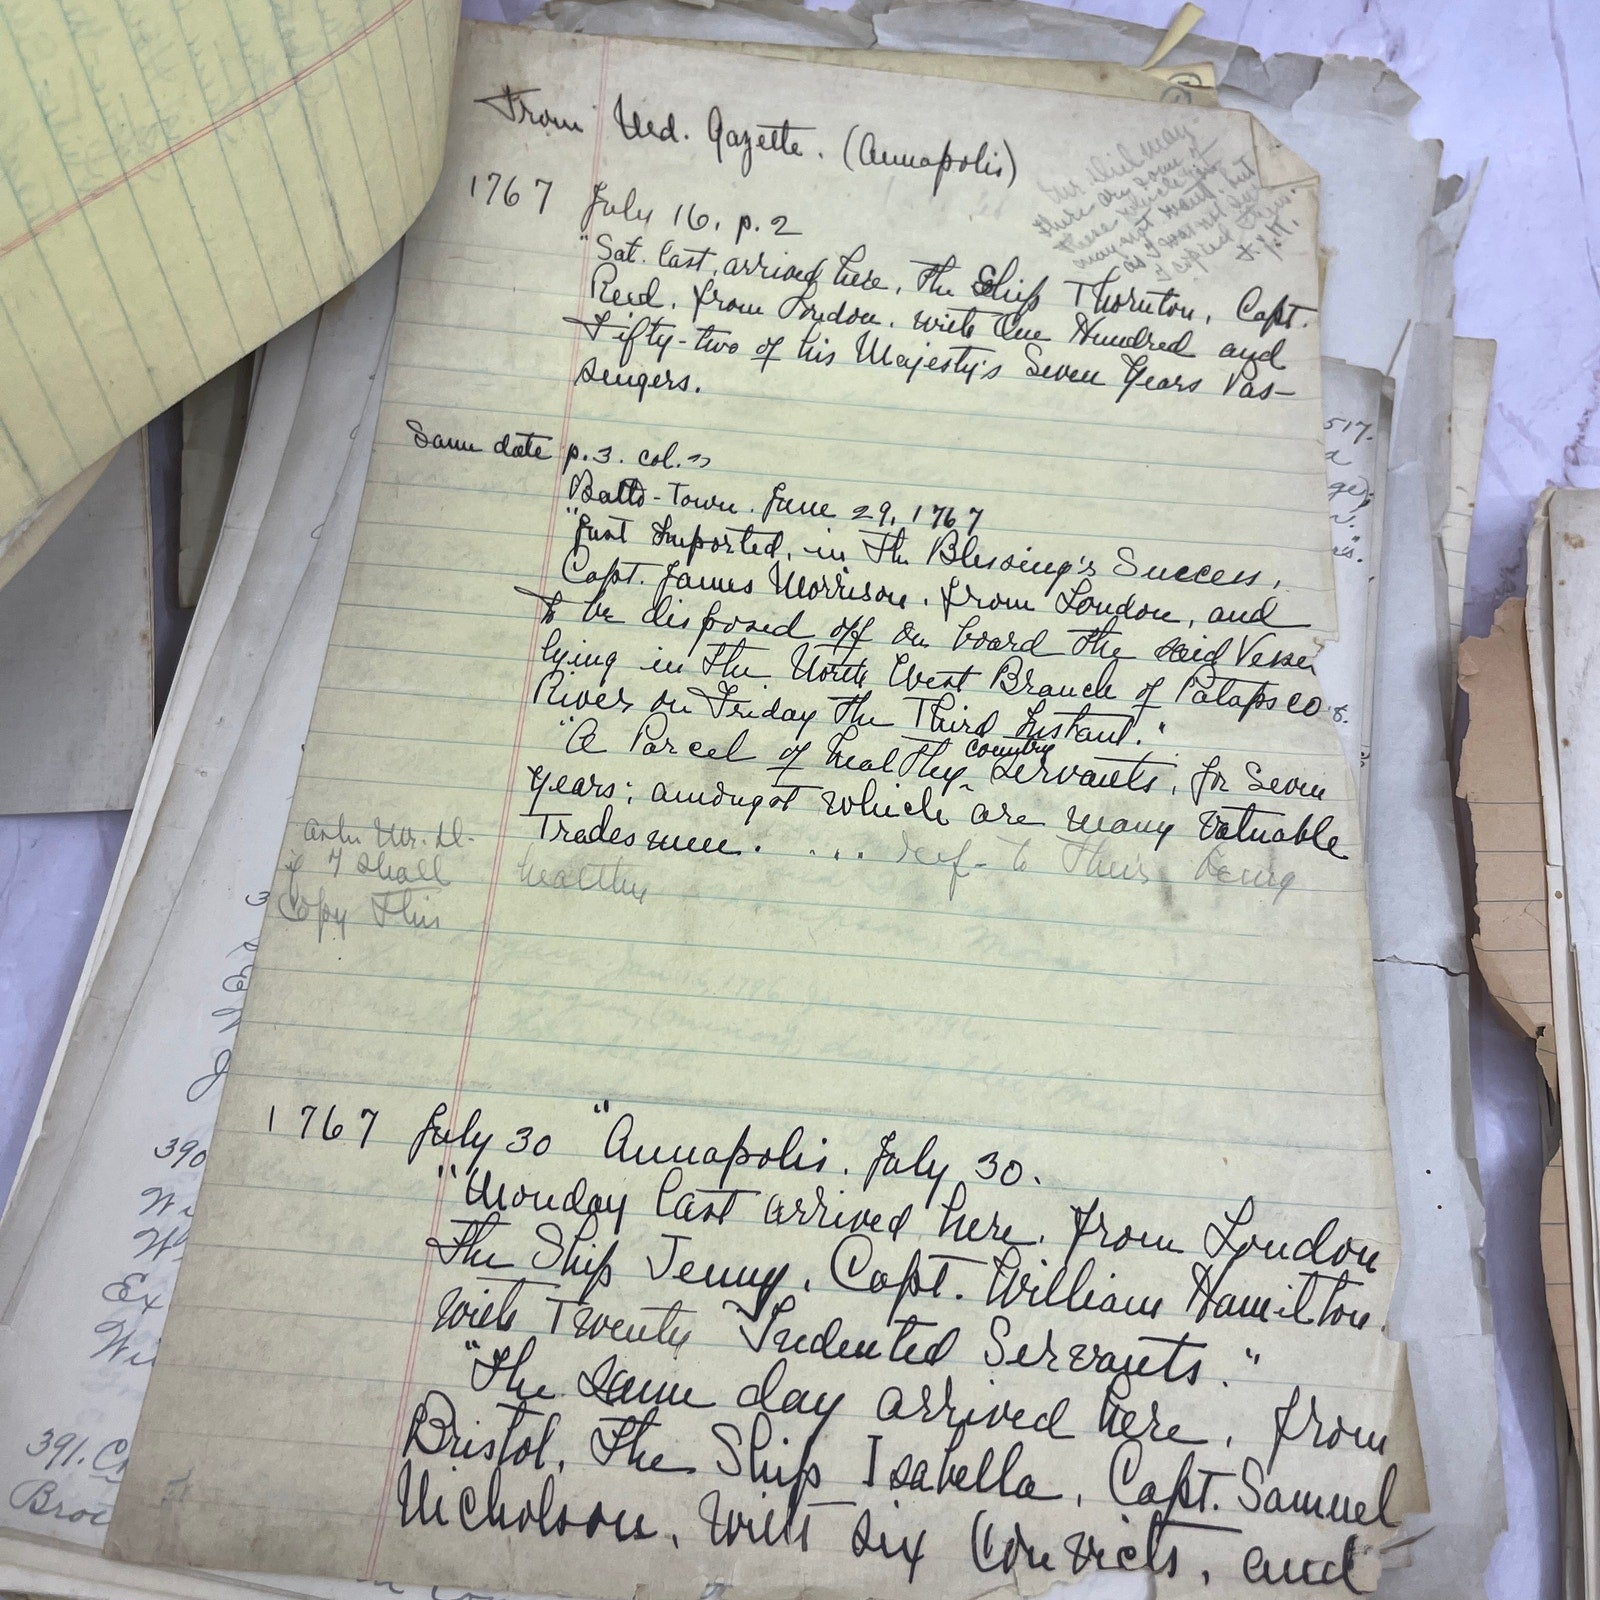 From Md. Gazette. (Annapolis)
Mr. Dielman.
there are some of
these which you
may not want, but
as I was not sure
I copied them.
1767 July 16, p. 2
"Sat. last, arrived here, The Ship Thornton, Capt.
Reed, from London, with One Hundred and
Fifty-two of his Majesty's Seven Years Pas-
sengers.
Same date p. 3. col. 2
Balto-Town. June 29, 1767
"Just Imported, in The Blessing's Success,
Capt. James Morrison, from London, and
to be disposed off on board the said Vessel
lying in the North West Branch of Patapsco
River on Friday the Third Instant."
"A Parcel of healthy country Servants, for Seven
Years; amongst which are many valuable
Tradesmen. . . . . ref- to Their being
healthy
ask Mr. D.
if I shall
Copy This
1767 July 30 "Annapolis. July 30.
"Monday last arrived here, from London
The Ship Jenny, Capt. William Hamilton,
with Twenty Indented Servants."
"The same day arrived here, from
Bristol, The Ship Isabella, Capt. Samuel
Nicholson, with six Convicts, and
517.
390
Wi
Ex
Wi
391. C
Broc